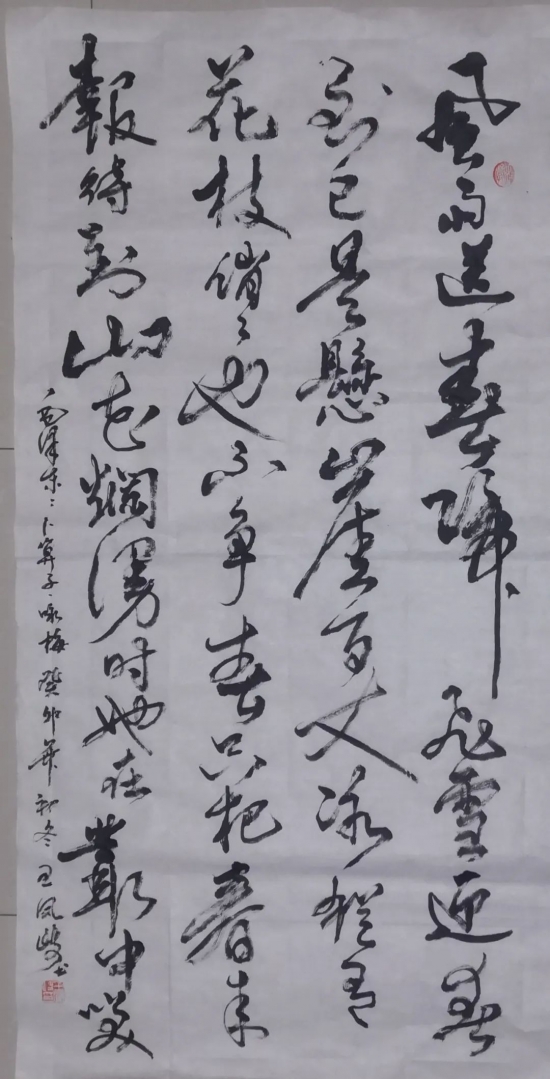 風雨送春歸飛雪迎春
到已是懸崖百丈冰猶有
花枝俏〻也不争春只把春来
報待到山花爛漫时她在叢中咲
毛泽东词卜算子·咏梅 癸卯年初冬 王凤书